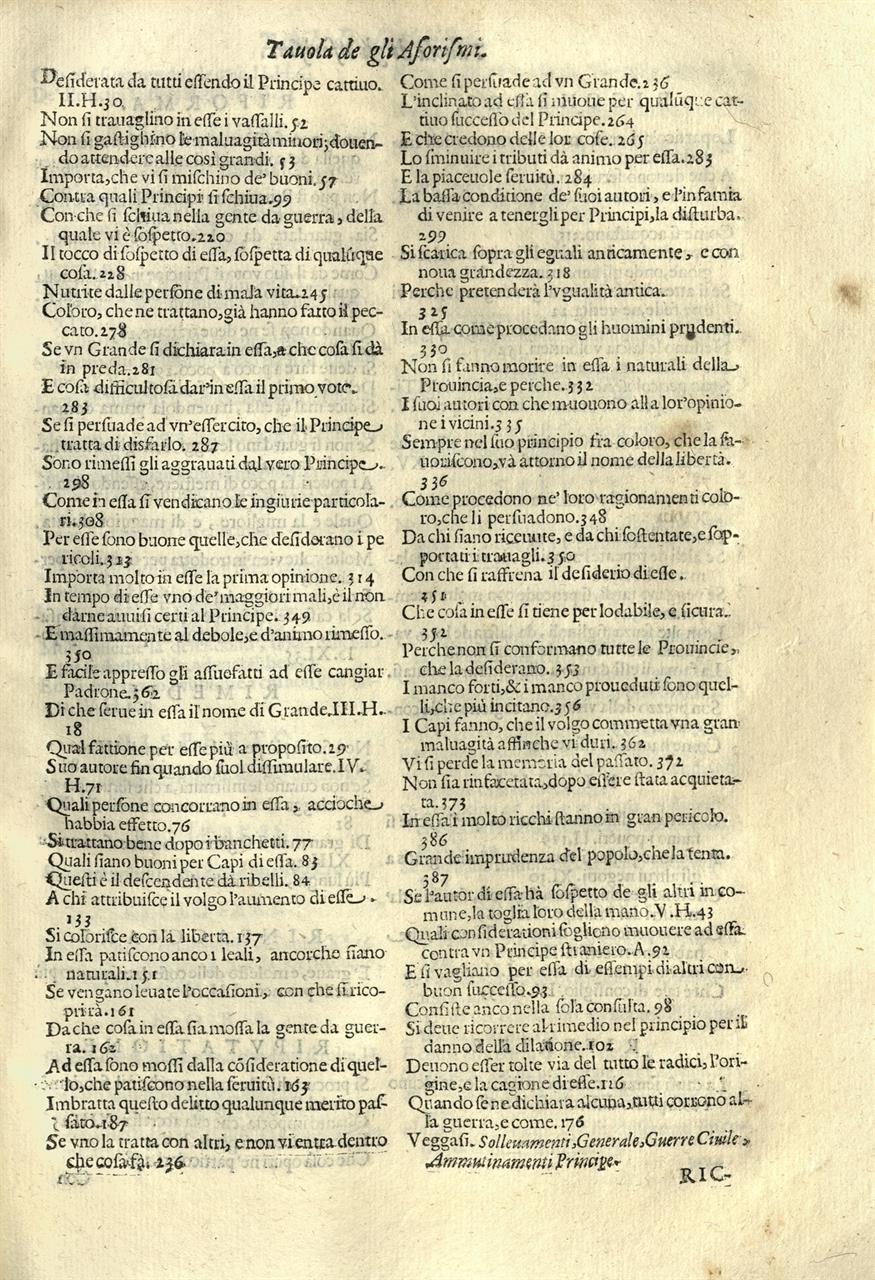 Tauola de gli Aforiſmi.
Deſiderata da tutti eſſendo il Principe cattiuo.
II.H.30
Non ſi trauaglino in eſſe i vaſſalli. 52
Non ſi gaſtighino le maluagità minori; douen-
do attendere alle così grandi. 53
Importa, che vi ſi miſchino de' buoni. 57
Contra quali Principi ſi ſchiua. 99
Con che ſi ſchiua nella gente da guerra, della
quale vi è ſoſpetto. 220
Il tocco di ſoſpetto di eſſa, ſoſpetta di qualũque
coſa. 228
Nutrite dalle perſone di mala vita. 245
Coloro, che ne trattano, già hanno fatto il pec-
cato. 278
Se vn Grande ſi dichiara in eſſa, a che coſa ſi dà
in preda. 281
E coſa difficultoſa dar'in eſſa il primo voto.
283
Se ſi perſuade ad vn'eſſercito, che il Principe
tratta di disfarlo. 287
Sono rimeſſi gli aggrauati dal vero Principe.
298
Come in eſſa ſi vendicano le ingiurie particola-
ri. 308
Per eſſe ſono buone quelle, che deſiderano i pe
ricoli. 313
Importa molto in eſſe la prima opinione. 314
In tempo di eſſe vno de' maggiori mali, è il non
darne auuiſi certi al Principe. 349
E maſſimamente al debole, e d'animo rimeſſo.
350
E facile appreſſo gli aſſuefatti ad eſſe cangiar
Padrone. 362
Di che ſerue in eſſa il nome di Grande. III.H.
18
Qual fattione per eſſe più a propoſito. 29
Suo autore fin quando ſuol diſſimulare. IV.
H.71
Quali perſone concorrano in eſſa, accioche
habbia effetto. 76
Si trattano bene dopo i banchetti. 77
Quali ſiano buoni per Capi di eſſa. 83
Queſti è il deſcendente da ribelli. 84
A chi attribuiſce il volgo l'aumento di eſſe.
133
Si coloriſce con la liberta. 137
In eſſa patiſcono anco i leali, ancorche ſiano
naturali. 151
Se vengano leuate l'occaſioni, con che ſi rico-
prirà. 161
Da che coſa in eſſa ſia moſſa la gente da guer-
ra. 162
Ad eſſa ſono moſſi dalla cõſideratione di quel-
lo, che patiſcono nella ſeruitù. 163
Imbratta queſto delitto qualunque merito paſ-
ſato. 187
Se vno la tratta con altri, e non vi entra dentro
che coſa fà. 236
Come ſi perſuade ad vn Grande. 236
L'inclinato ad eſſa ſi muoue per qualũque cat-
tiuo ſucceſſo del Principe. 264
E che credono delle lor coſe. 265
Lo ſminuire i tributi dà animo per eſſa. 283
E la piaceuole ſeruitù. 284
La baſſa conditione de' ſuoi autori, e l'infamia
di venire a tenergli per Principi, la diſturba.
299
Si ſcarica ſopra gli eguali anticamente, e con
noua grandezza. 318
Perche pretenderà l'vgualità antica.
325
In eſſa come procedano gli huomini prudenti.
330
Non ſi fanno morire in eſſa i naturali della
Prouincia, e perche. 332
I ſuoi autori con che muouono alla lor'opinio-
ne i vicini. 335
Sempre nel ſuo principio fra coloro, che la fa-
uoriſcono, và attorno il nome della libertà.
336
Come procedono ne' loro ragionamenti colo-
ro, che li perſuadono. 348
Da chi ſiano riceuute, e da chi ſoſtentate, e ſop-
portati i trauagli. 350
Con che ſi raffrena il deſiderio di eſſe.
351
Che coſa in eſſe ſi tiene per lodabile, e ſicura.
352
Perche non ſi conformano tutte le Prouincie,
che la deſiderano. 353
I manco forti, & i manco proueduti ſono quel-
li, che più incitano. 356
I Capi fanno, che il volgo commetta vna gran
maluagità affinche vi duri. 362
Vi ſi perde la memoria del paſſato. 372
Non ſia rinfacetata, dopo eſſere ſtata acquieta-
ta. 373
In eſſa i molto ricchi ſtanno in gran pericolo.
386
Grande imprudenza del popolo, che la tenta.
387
Se l'autor di eſſa hà ſoſpetto de gli altri in co-
mune, la toglia loro della mano. V.H.43
Quali conſiderationi ſogliono muouere ad eſſa
contra vn Principe ſtraniero. A.92
E ſi vagliano per eſſa di eſſempi di altri con
buon ſucceſſo. 93
Conſiſte anco nella ſola conſulta. 98
Si deue ricorrere al rimedio nel principio per il
danno della dilatione. 102
Deuono eſſer tolte via del tutto le radici, l'ori-
gine, e la cagione di eſſe. 116
Quando ſe ne dichiara alcuna, tutti corrono al-
la guerra, e come. 176
Veggaſi. Solleuamenti, Generale, Guerre Ciuile,
Ammutinamenti Principe.
RIC-